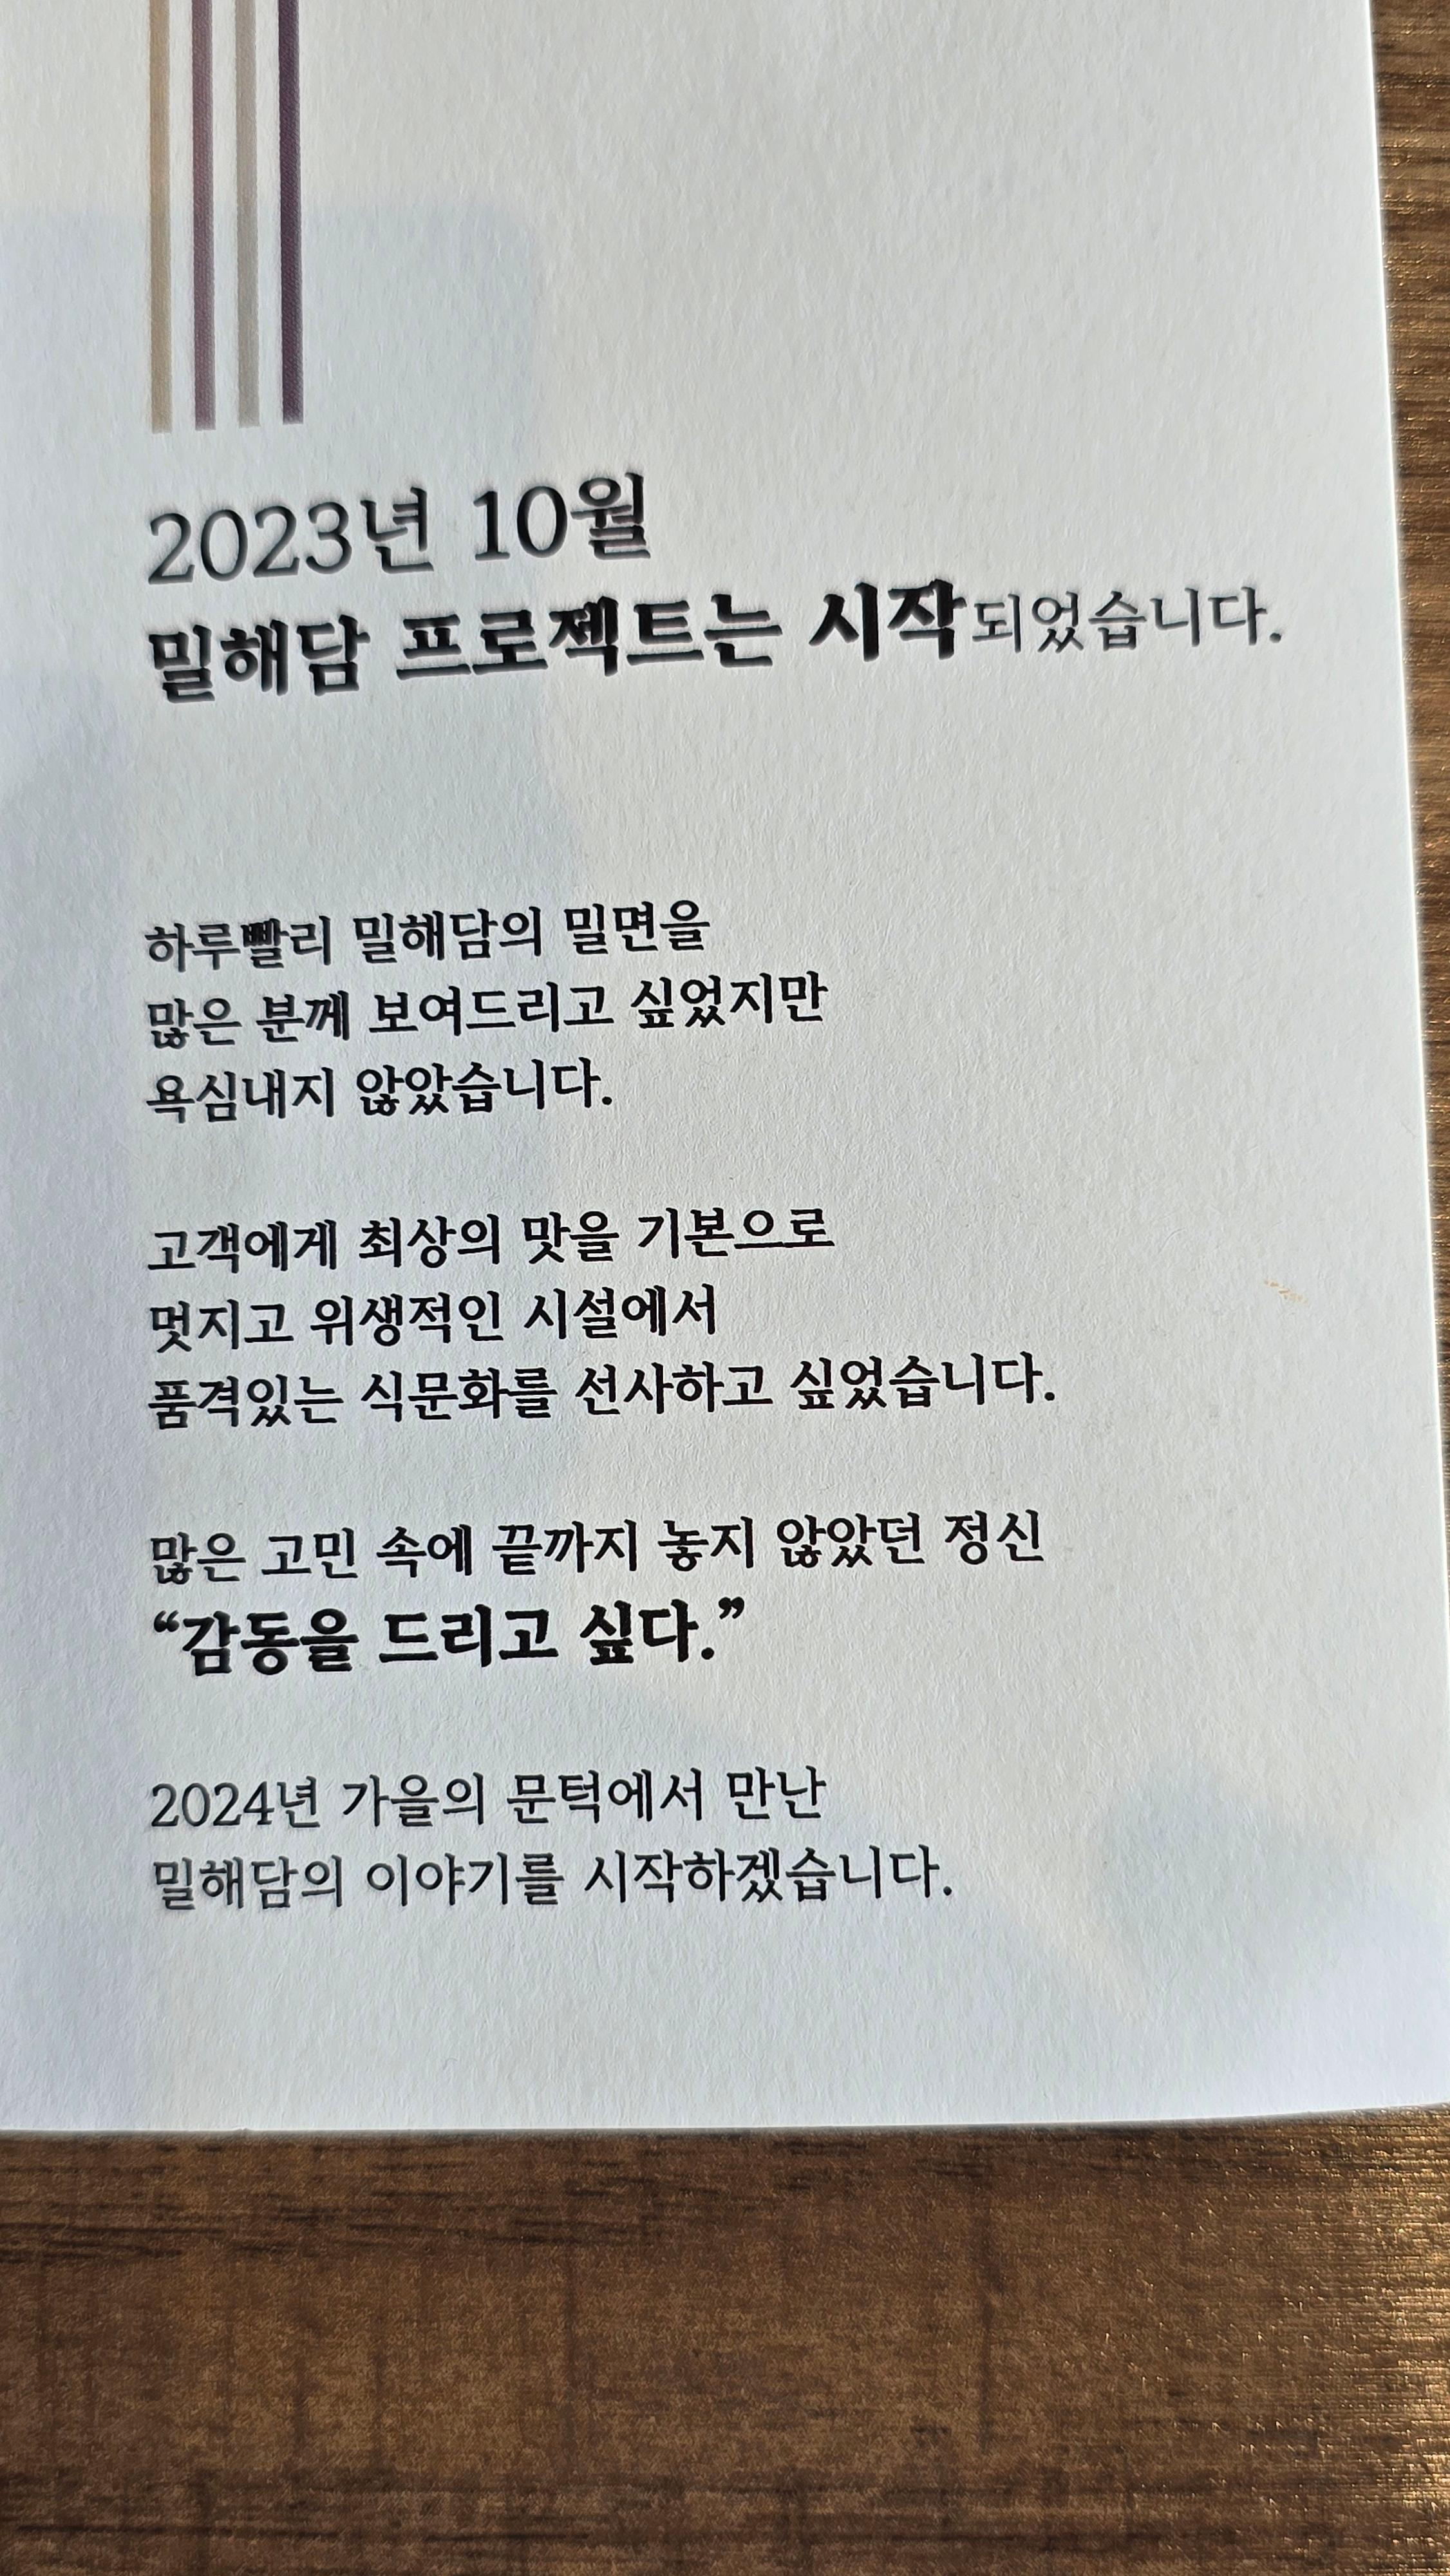 2023년 10월
밀해담 프로젝트는 시작되었습니다.
하루빨리 밀해담의 밀면을
많은 분께 보여드리고 싶었지만
욕심내지 않았습니다.
고객에게 최상의 맛을 기본으로
멋지고 위생적인 시설에서
품격있는 식문화를 선사하고 싶었습니다.
많은 고민 속에 끝까지 놓지 않았던 정신
“감동을 드리고 싶다.”
2024년 가을의 문턱에서 만난
밀해담의 이야기를 시작하겠습니다.